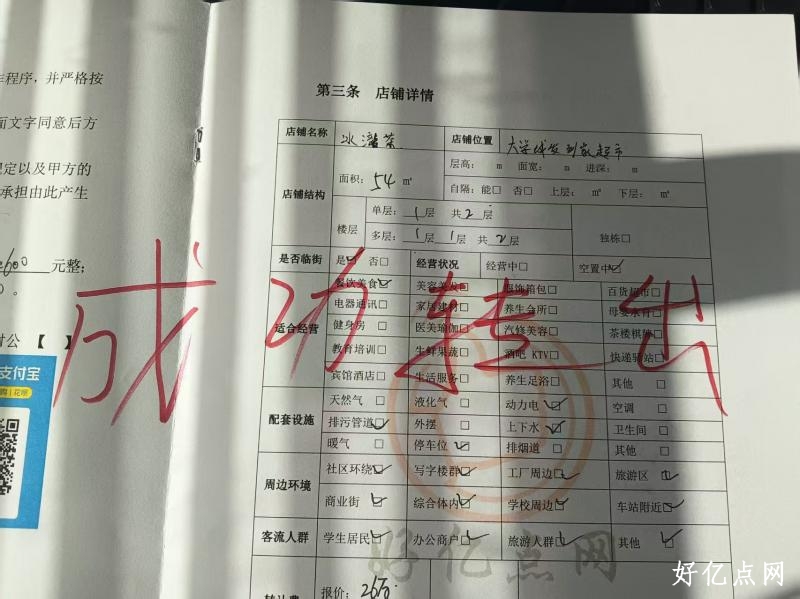 作程序，并严格按
面文字同意后方
规定以及甲方的
承担由此产生
元整；
付公 【 】
支付宝
花呗
第三条 店铺详情
店铺名称 水 茶 店铺位置
店铺结构 面积：54 ㎡ 层高： m 面宽： m 进深： m
自隔：能□ 否□ 上层： ㎡ 下层： ㎡
楼层 单层：1层 共2层 独栋□
多层：1层1层 共2层
是否临街 是☑ 否□ 经营状况 经营中□ 空置中☑
适合经营 餐饮美食☑ 美容美发□ 服饰箱包□ 百货超市□
电器通讯□ 家居建材□ 养生会所□ 母婴水育□
健身房 □ 医美瑜伽□ 汽修美容□ 茶楼棋牌□
教育培训□ 生鲜果蔬□ 酒吧 KTV□ 快递驿站□
宾馆酒店□ 生活服务□ 养生足浴□ 其他 □
配套设施 天然气 □ 液化气 □ 动力电☑ 空调 □
排污管道☑ 外摆 □ 上下水☑ 卫生间 □
暖气 □ 停车位☑ 排烟道 □ 其他 □
周边环境 社区环绕☑ 写字楼群☑ 工厂周边☑ 旅游区☑
商业街☑ 综合体内☑ 学校周边☑ 车站附近☑
客流人群 学生居民☑ 办公商户☑ 旅游人群☑ 其他☑
转让费 报价：26万
成功转出
好亿点网
好亿点网